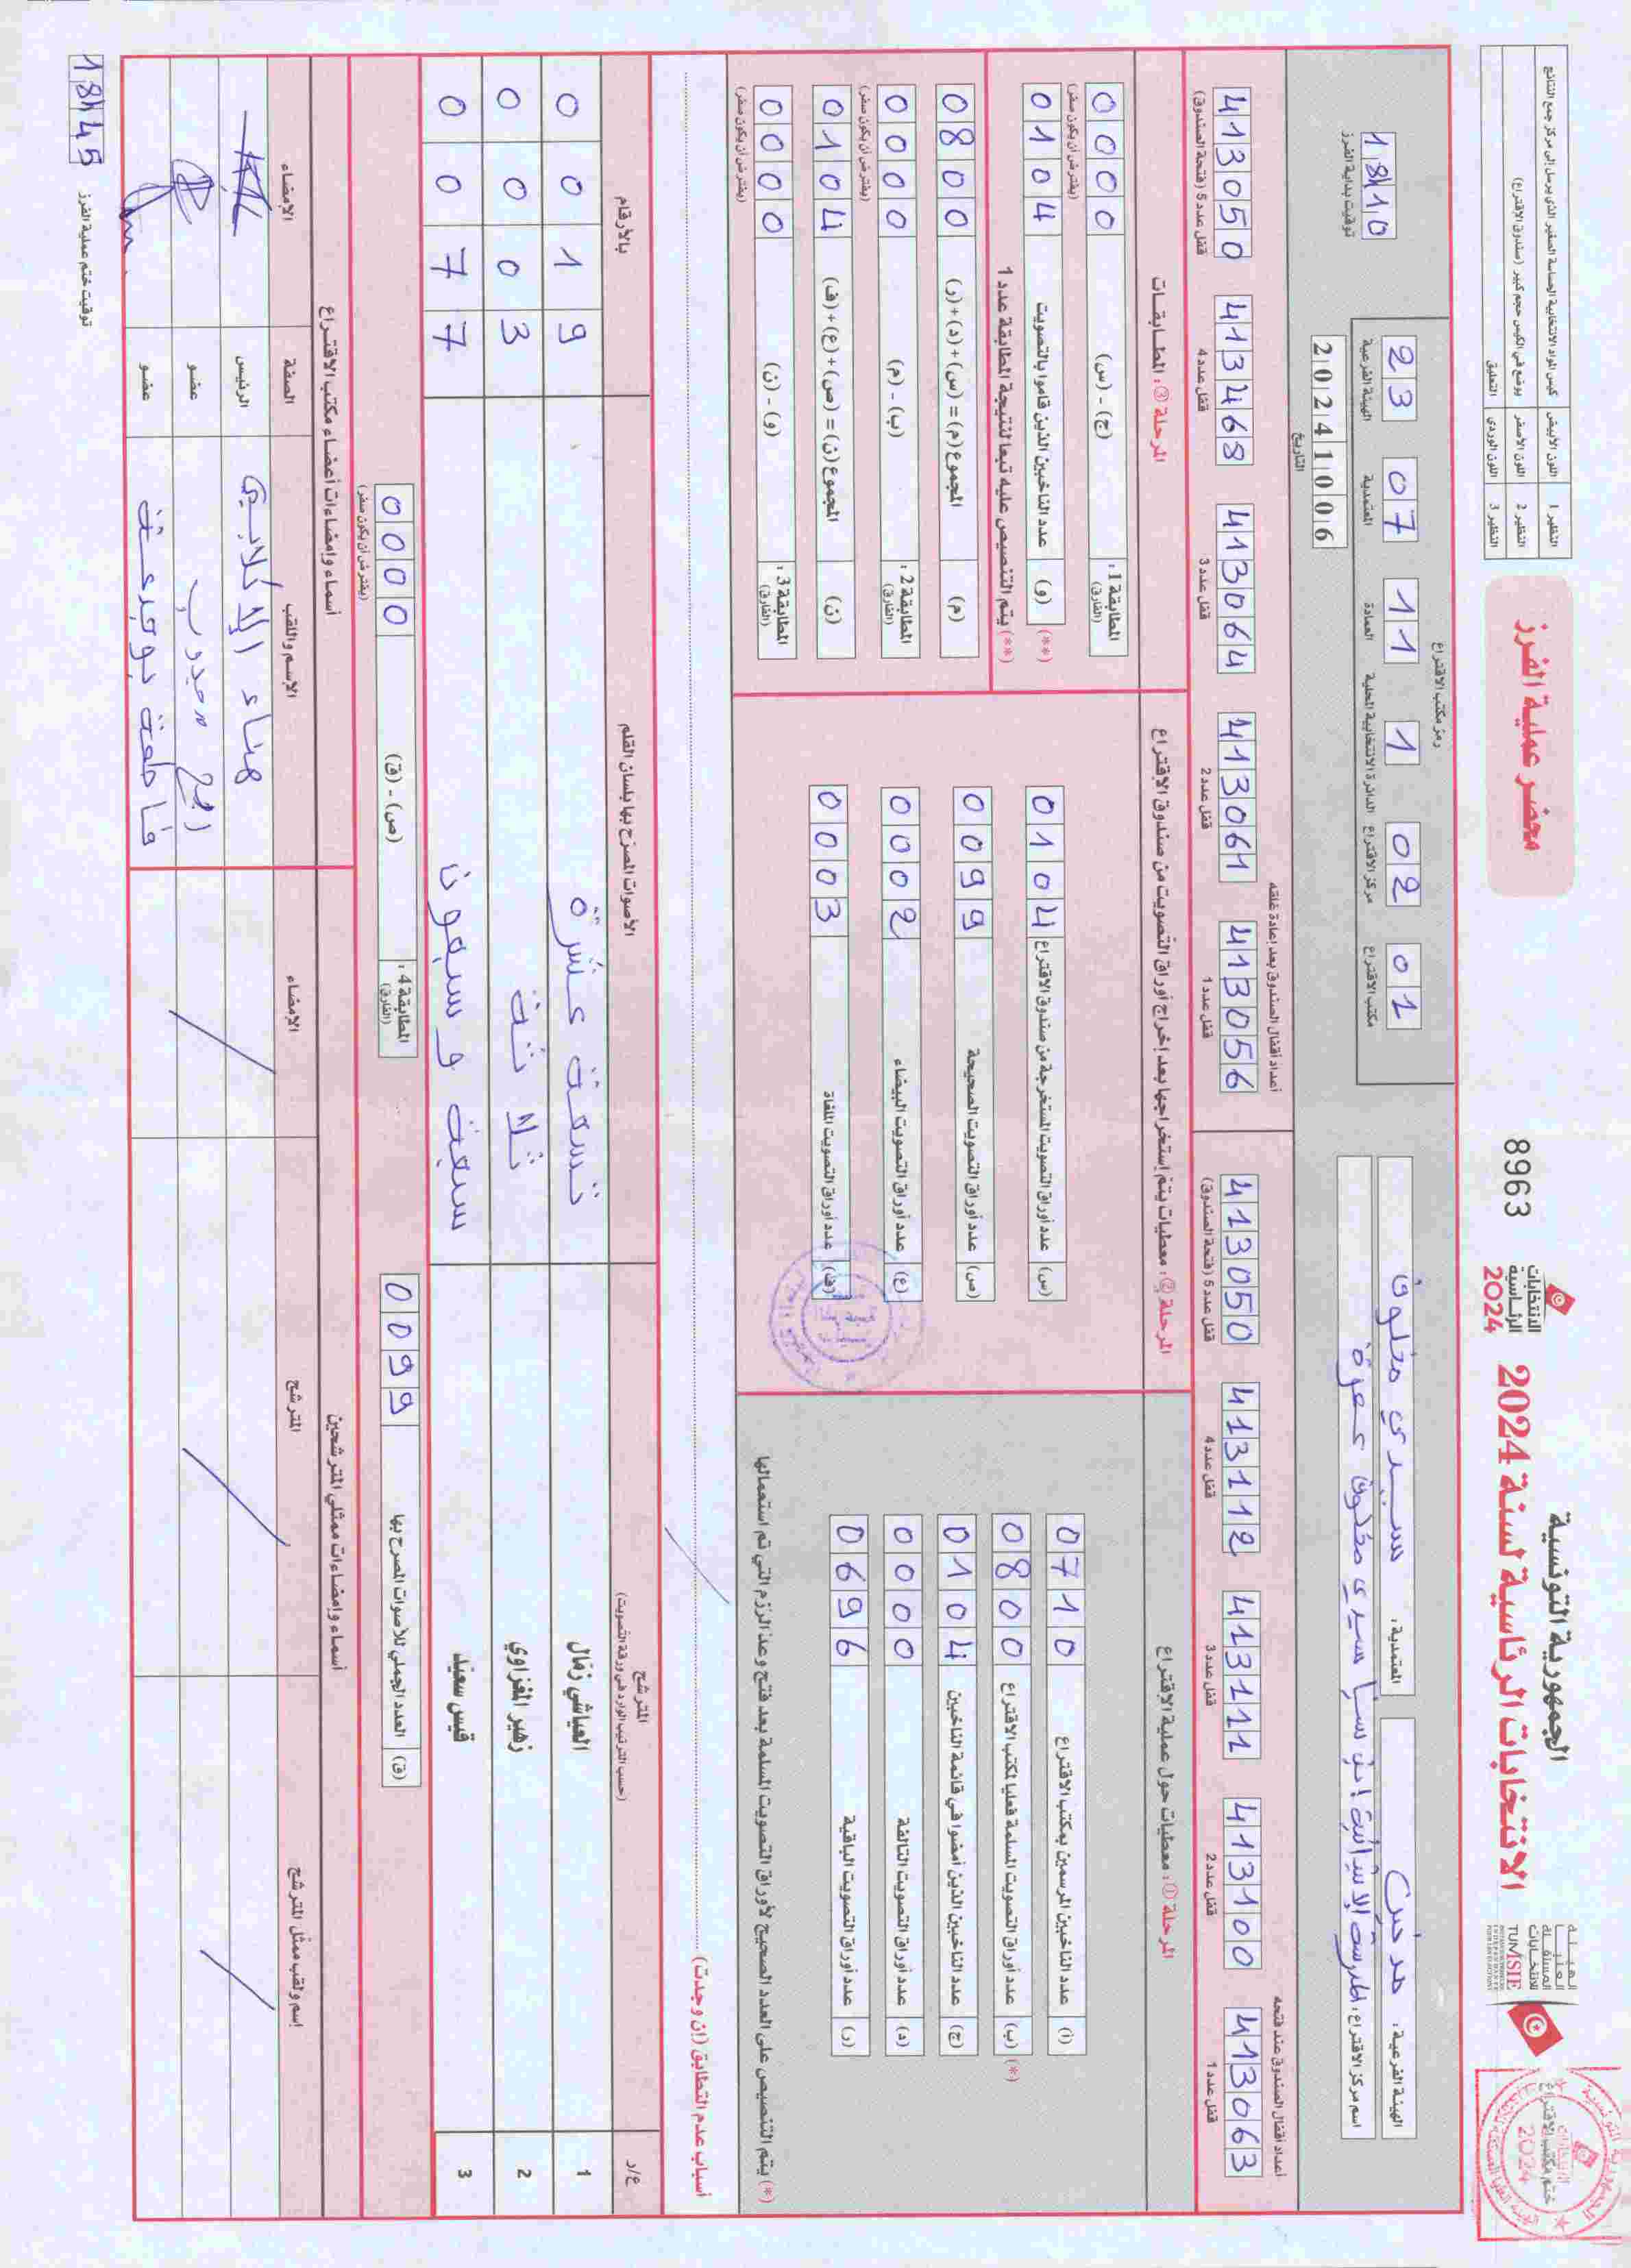 الجمهورية التونسية
الانتخابات الرئاسية لسنة 2024
الهيئة العليا المستقلة للانتخابات
TUNISIE
الانتخابات الرئاسية 2024
8963
محضر عملية الفرز
النظير 1 اللون الأبيض كيس المواد الانتخابية الحساسة الصغير الذي يرسل إلى مركز جمع النتائج
النظير 2 اللون الأصفر يوضع في الكيس حجم كبير (صندوق الاقتراع)
النظير 3 اللون الوردي التعليق
ختم مكتب الاقتراع
2024
الهيئة الفرعية:
المعتمدية: سيدي مخلوف
اسم مركز الاقتراع: المدرسة الإبتدائية سيدي مخلوف
رمز مكتب الاقتراع
23 07 11 1 02 01
الهيئة الفرعية المعتمدية العمادة الدائرة الانتخابية المحلية مركز الاقتراع مكتب الاقتراع
20241006
التاريخ
18h10
توقيت بداية الفرز
أعداد أقفال الصندوق عند فتحه
413063 413100 413111 413112 413050
قفل عدد 1 قفل عدد 2 قفل عدد 3 قفل عدد 4 قفل عدد 5 (فتحة الصندوق)
أعداد أقفال الصندوق بعد إعادة غلقه
413056 413061 413064 4132468 413050
قفل عدد 1 قفل عدد 2 قفل عدد 3 قفل عدد 4 قفل عدد 5 (فتحة الصندوق)
المرحلة ①: معطيات حول عملية الاقتراع
(أ) عدد الناخبين المرسمين بمكتب الاقتراع 0710
(*) (ب) عدد أوراق التصويت المسلمة فعليا لمكتب الاقتراع 0800
(ج) عدد الناخبين الذين أمضوا في قائمة الناخبين 0104
(د) عدد أوراق التصويت التالفة 0000
(ر) عدد أوراق التصويت الباقية 0696
(*) يتم التنصيص على العدد الصحيح لأوراق التصويت المسلمة بعد فتح وعد الرزم التي تم استعمالها
المرحلة ②: معطيات يتم إستخراجها بعد إخراج أوراق التصويت من صندوق الاقتراع
(س) عدد أوراق التصويت المستخرجة من صندوق الاقتراع 0104
(ص) عدد أوراق التصويت الصحيحة 0099
(ع) عدد أوراق التصويت البيضاء 0002
(ف) عدد أوراق التصويت الملغاة 0003
المرحلة ③: المطابقات
المطابقة 1: (الفارق) (ج) - (س) 0000
(يفترض أن يكون صفر)
(**) (و) عدد الناخبين الذين قاموا بالتصويت 0104
(**) يتم التنصيص عليه تبعا لنتيجة المطابقة عدد 1
(م) المجموع (م) = (س)+(د)+(ر) 0800
المطابقة 2: (الفارق) (ب) - (م) 0000
(يفترض أن يكون صفر)
(ن) المجموع (ن) = (ص)+(ع)+(ف) 0104
المطابقة 3: (الفارق) (و) - (ن) 0000
(يفترض أن يكون صفر)
أسباب عدم التطابق (إن وجدت)
ع/د المترشح (حسب الترتيب الوارد في ورقة التصويت) الأصوات المصرّح بها بلسان القلم بالأرقام
1 العياشي زمّال تسعة عشرة 0019
2 زهير المغزاوي ثلاثة 0003
3 قيس سعيّد سبعة و سبعون 0077
(ق) العدد الجملي للأصوات المصرح بها 0099
المطابقة 4: (الفارق) (ص) - (ق) 0000
(يفترض أن يكون صفر)
أسماء وإمضاءات ممثلي المترشحين
إسم ولقب ممثل المترشح المترشح الامضاء
أسماء وإمضاءات أعضاء مكتب الاقتراع
الإسم واللقب الصفة الإمضاء
هناء الرئيس
عضو
فاطمة عضو
18h45 توقيت ختم عملية الفرز